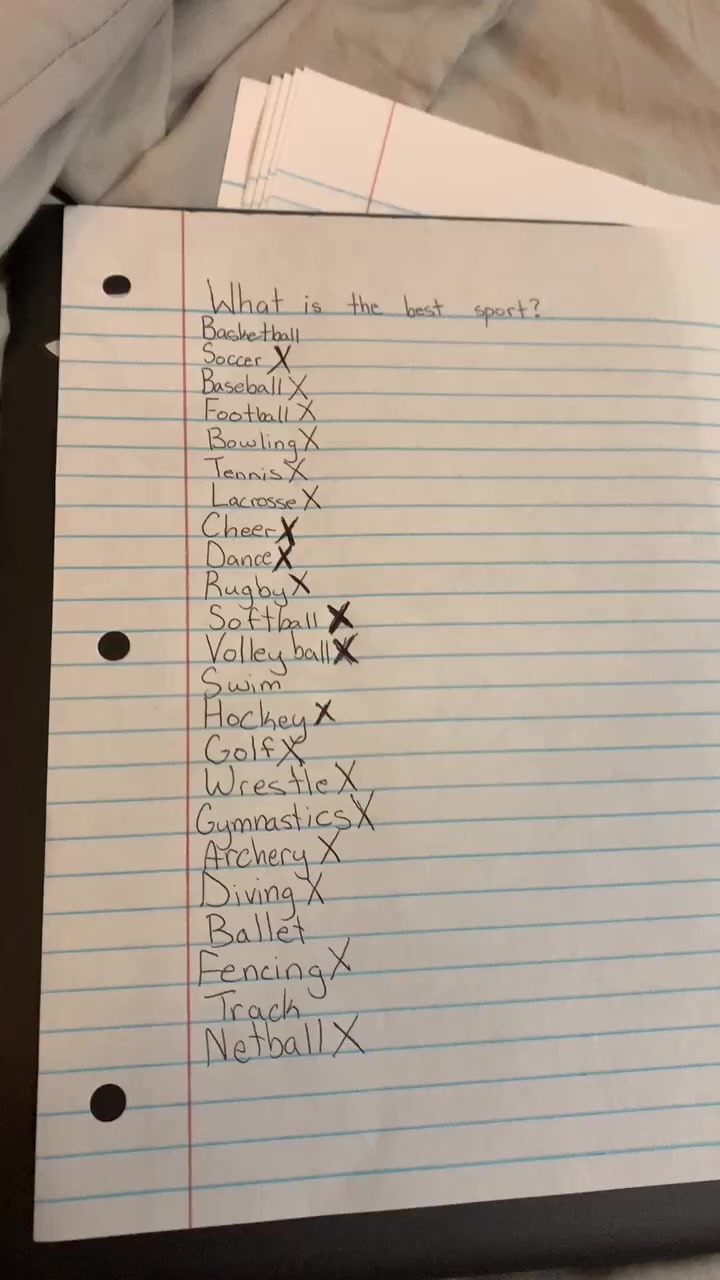 What is the best sport?
Basketball
Soccer X
Baseball X
Football X
Bowling X
Tennis X
Lacrosse X
Cheer X
Dance X
Rugby X
Softball X
Volley ball X
Swim
Hockey X
Golf X
Wrestle X
Gymnastics X
Archery X
Diving X
Ballet
Fencing X
Track
Netball X